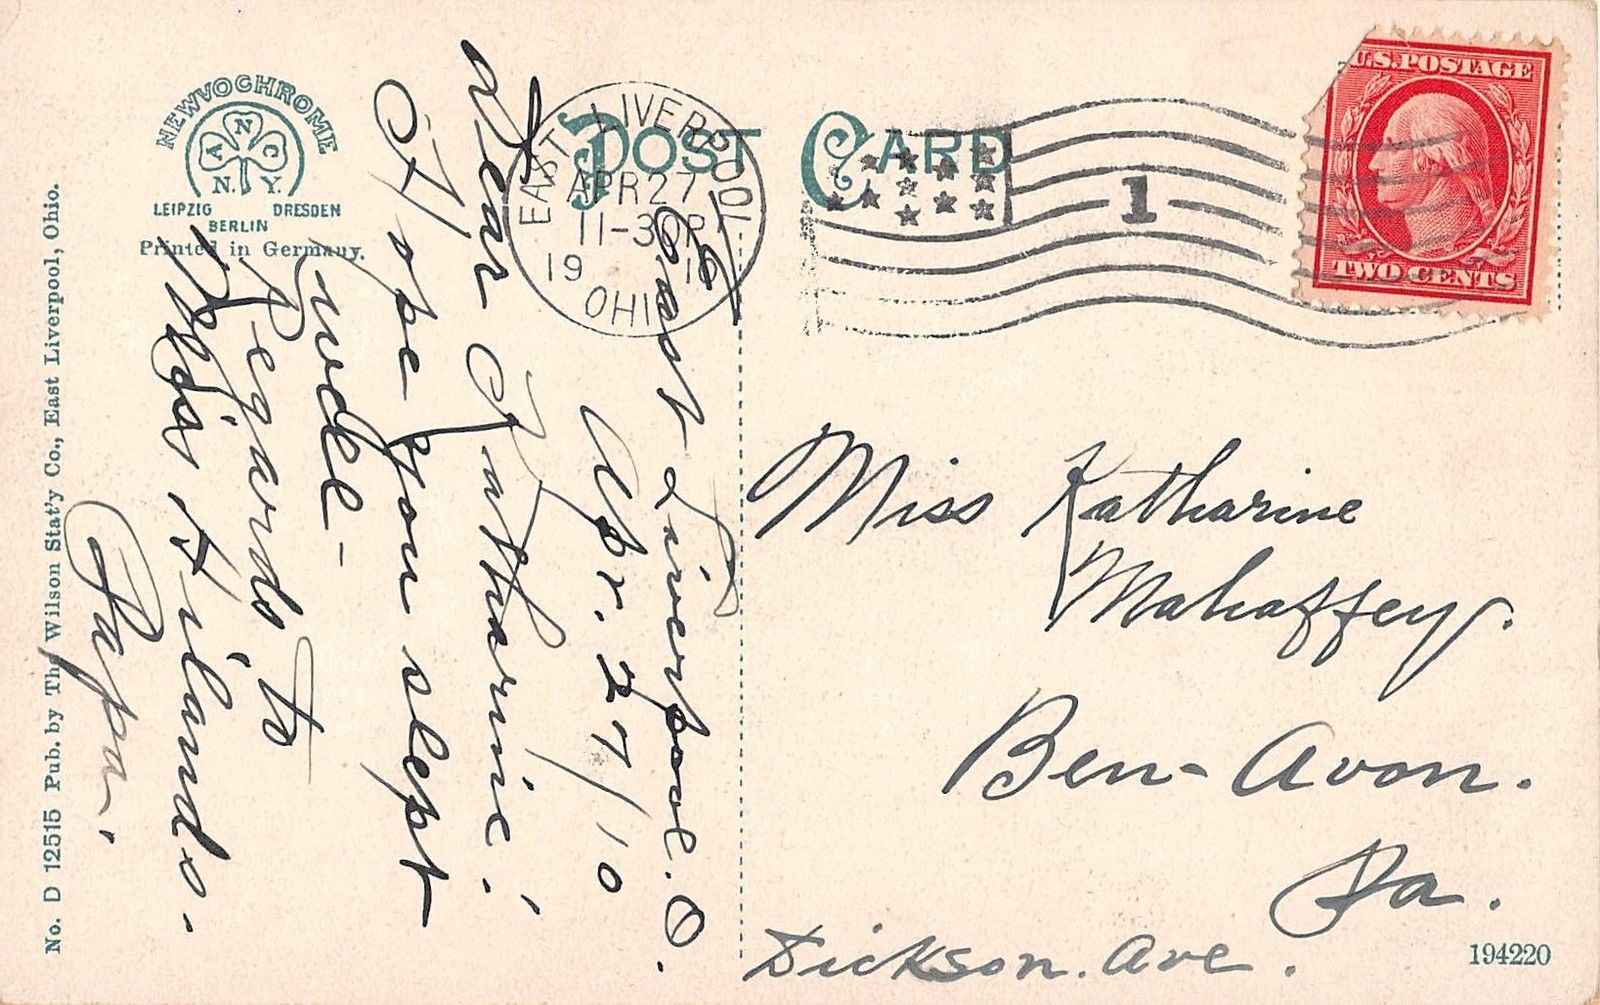 POST CARD
NEWVOCHROME
N
A C
N. Y.
LEIPZIG DRESDEN
BERLIN
Printed in Germany.
EAST LIVERPOOL
APR 27
11-30P
19 10
OHIO
1
U.S.POSTAGE
TWO CENTS
East Liverpool. O.
Apr. 27/10
Dear Katharine:
Hope you slept
Regards to
Papa.
Miss Katharine
Mahaffey.
Ben-Avon.
Pa.
Dickson. Ave.
194220
No. D 12515 Pub. by The Wilson Stat'y Co., East Liverpool, Ohio.